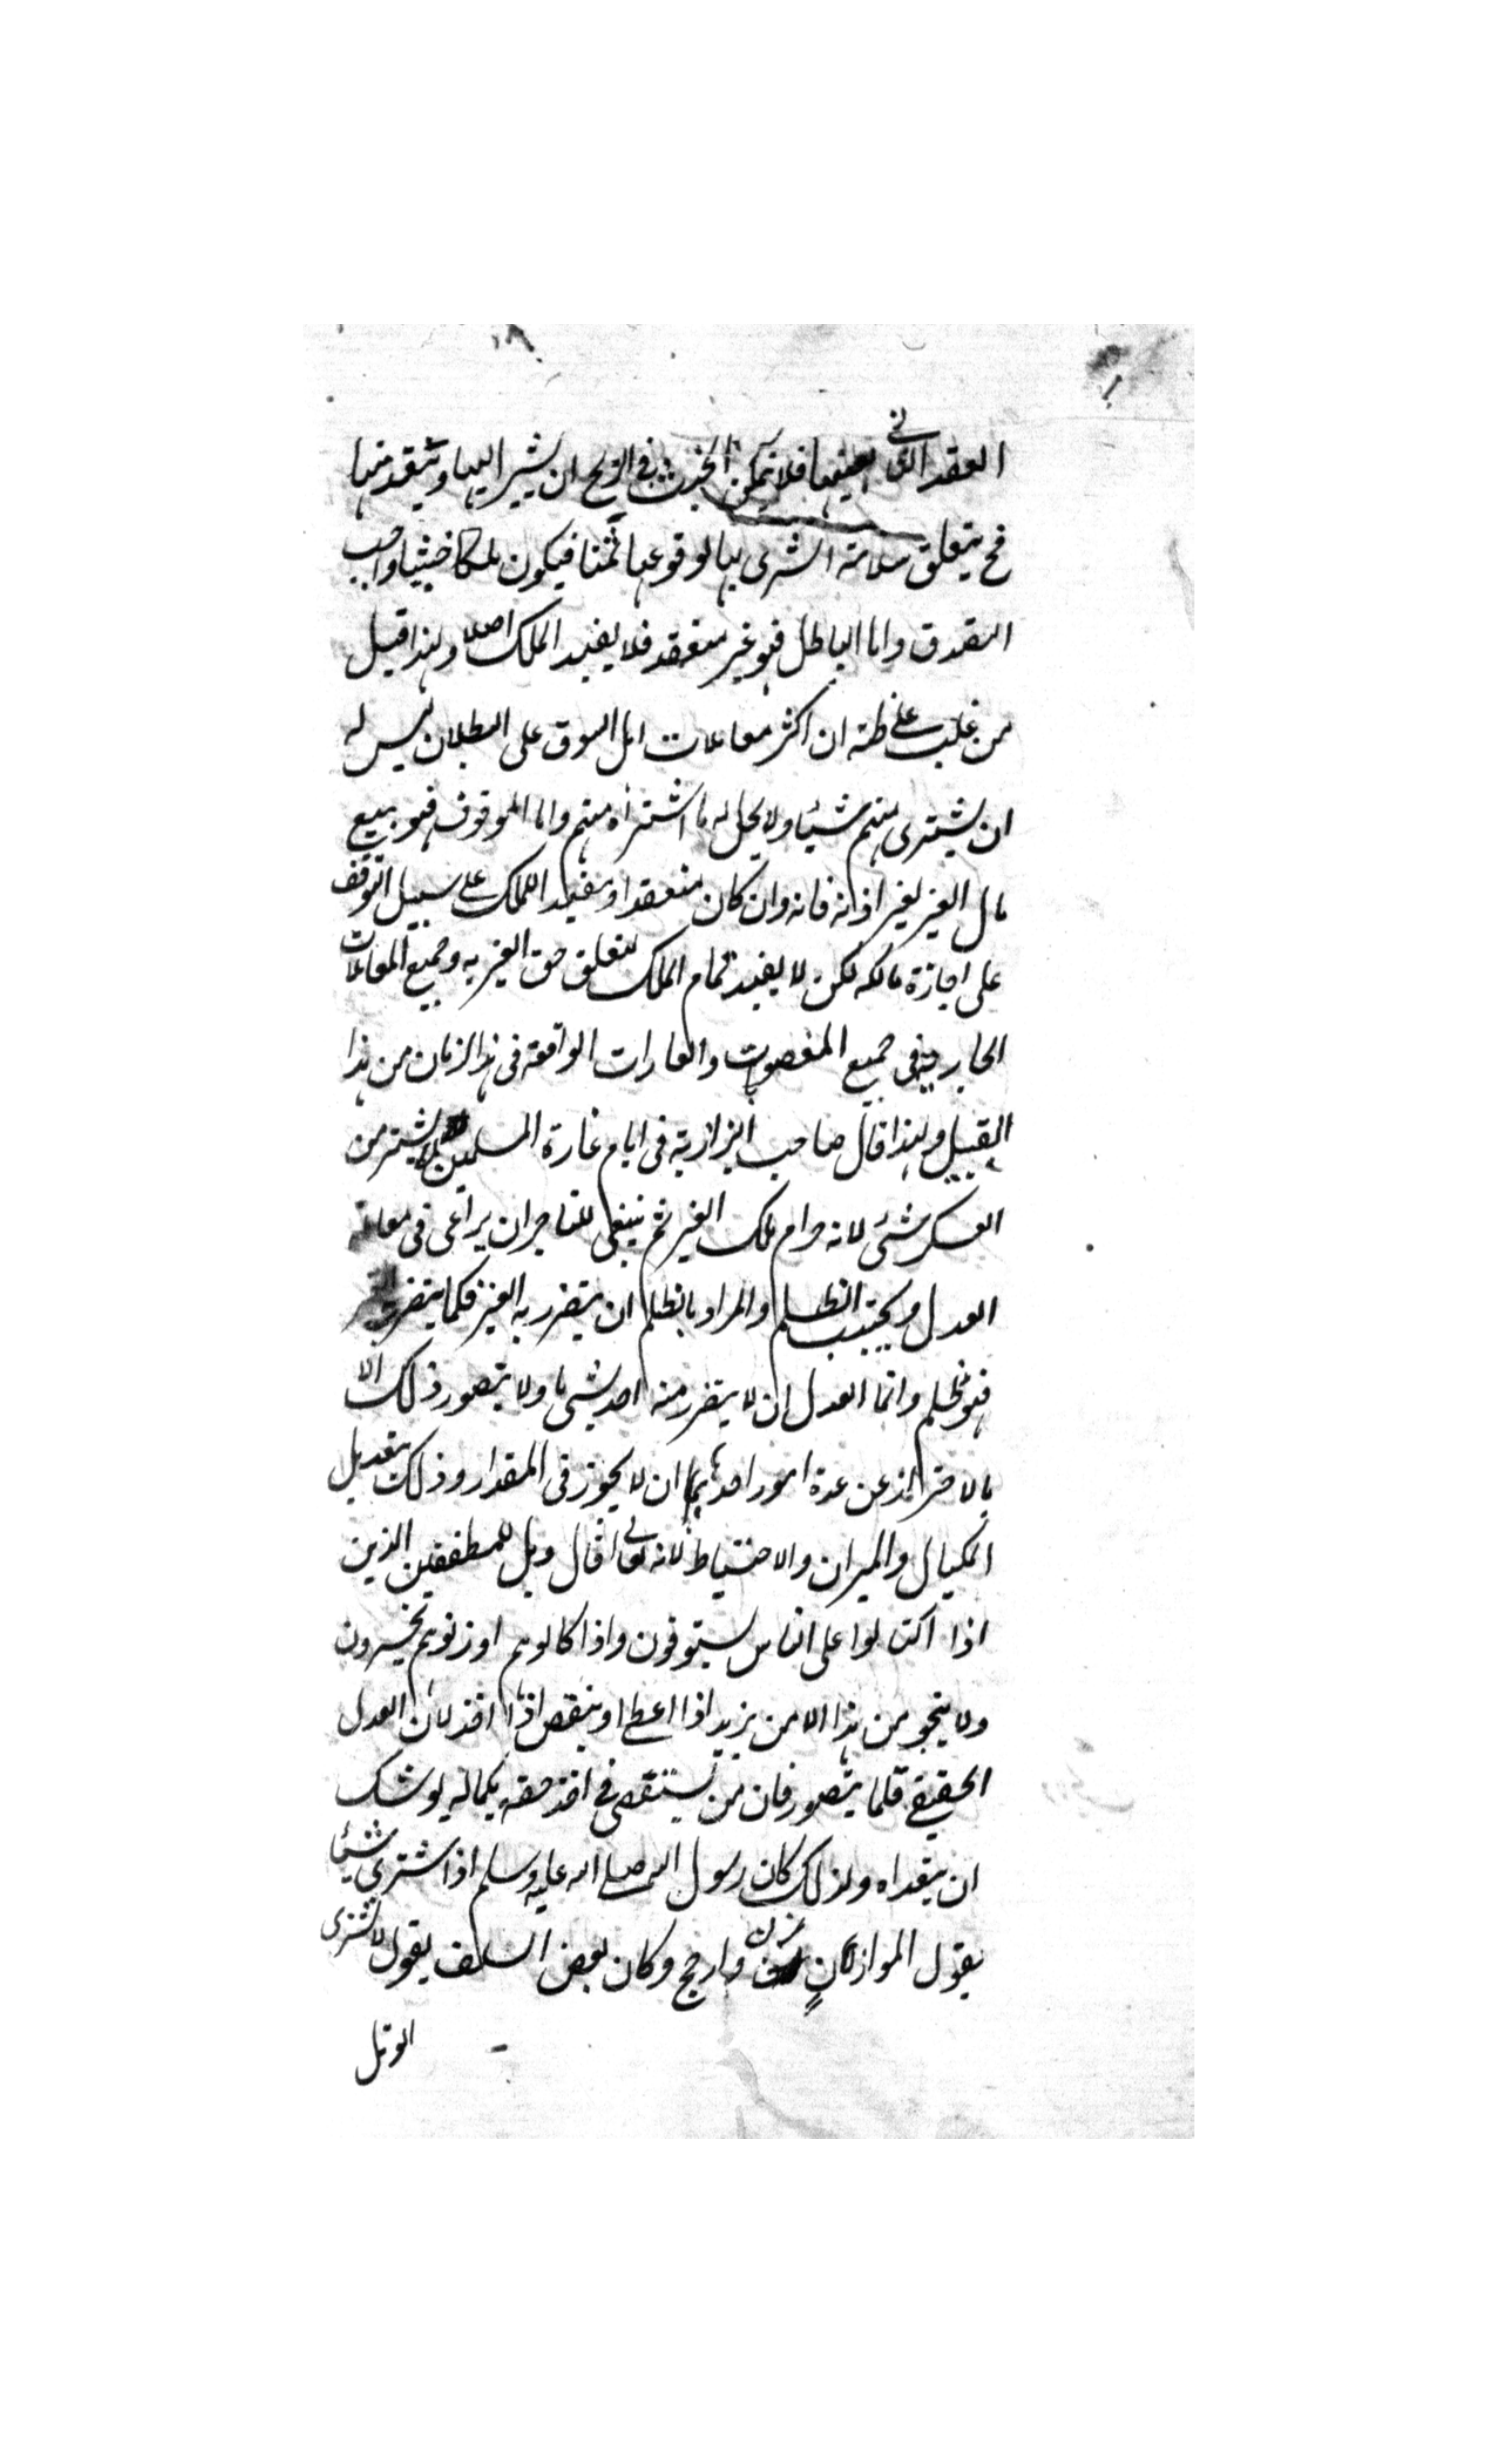 العقد الثانى بعينها فلا يتمكن الخبث فى الربح ان يشير اليها وينقد منها
فح يتعلق سلامة الشرى بها لوقوعها ثمنا فيكون ملكا خبيثا واجب
التصدق واما الباطل فهو غير منعقد فلا يفيد الملك اصلا ولهذا قيل
من غلب على ظنه ان اكثر معاملات اهل السوق على البطلان ليس له
ان يشترى منهم شيئا ولا يحل له ما اشتراه منهم واما الموقوف فهو بيع
مال الغير بغير اذنه فانه وان كان منعقدا ومفيدا للملك على سبيل التوقف
على اجازة مالكه لكن لا يفيد تمام الملك لتعلق حق الغير به وجميع المعاملات
الجارية فى جميع المغصوبات والغارات الواقعة فى هذا الزمان من هذا
القبيل ولهذا قال صاحب البزازية فى ايام غارة المسلمين لا يشتر من
العسكر شئ لانه حرام ملك الغير ثم ينبغى للتاجر ان يراعى فى معاملته
العدل ويجتنب الظلم والمراد بالظلم ان يتضرر به الغير فكلما يتضرر به الغير
فهو ظلم وانما العدل ان لا يتضرر منه احد بشى ما ولا يتصور ذلك الا
بالاحتراز عن عدة امور احدها ان لا يجوز فى المقدار وذلك بتعديل
المكيال والميزان والاحتياط لانه تعالى قال ويل للمطففين الذين
اذا اكتالوا على الناس يستوفون واذا كالوهم او وزنوهم يخسرون
ولا ينجو من هذا الا من يزيد اذا اعطى او ينقص اذا اخذ لان العدل
الحقيقى قلما يتصور فان من يستقصى فى اخذ حقه بكماله يوشك
ان يتعداه ولذلك كان رسول الله صلى الله عليه وسلم اذا اشترى شيئا
يقول الموازن زن وارجح وكان بعض السلف يقول لا نشترى
الويل